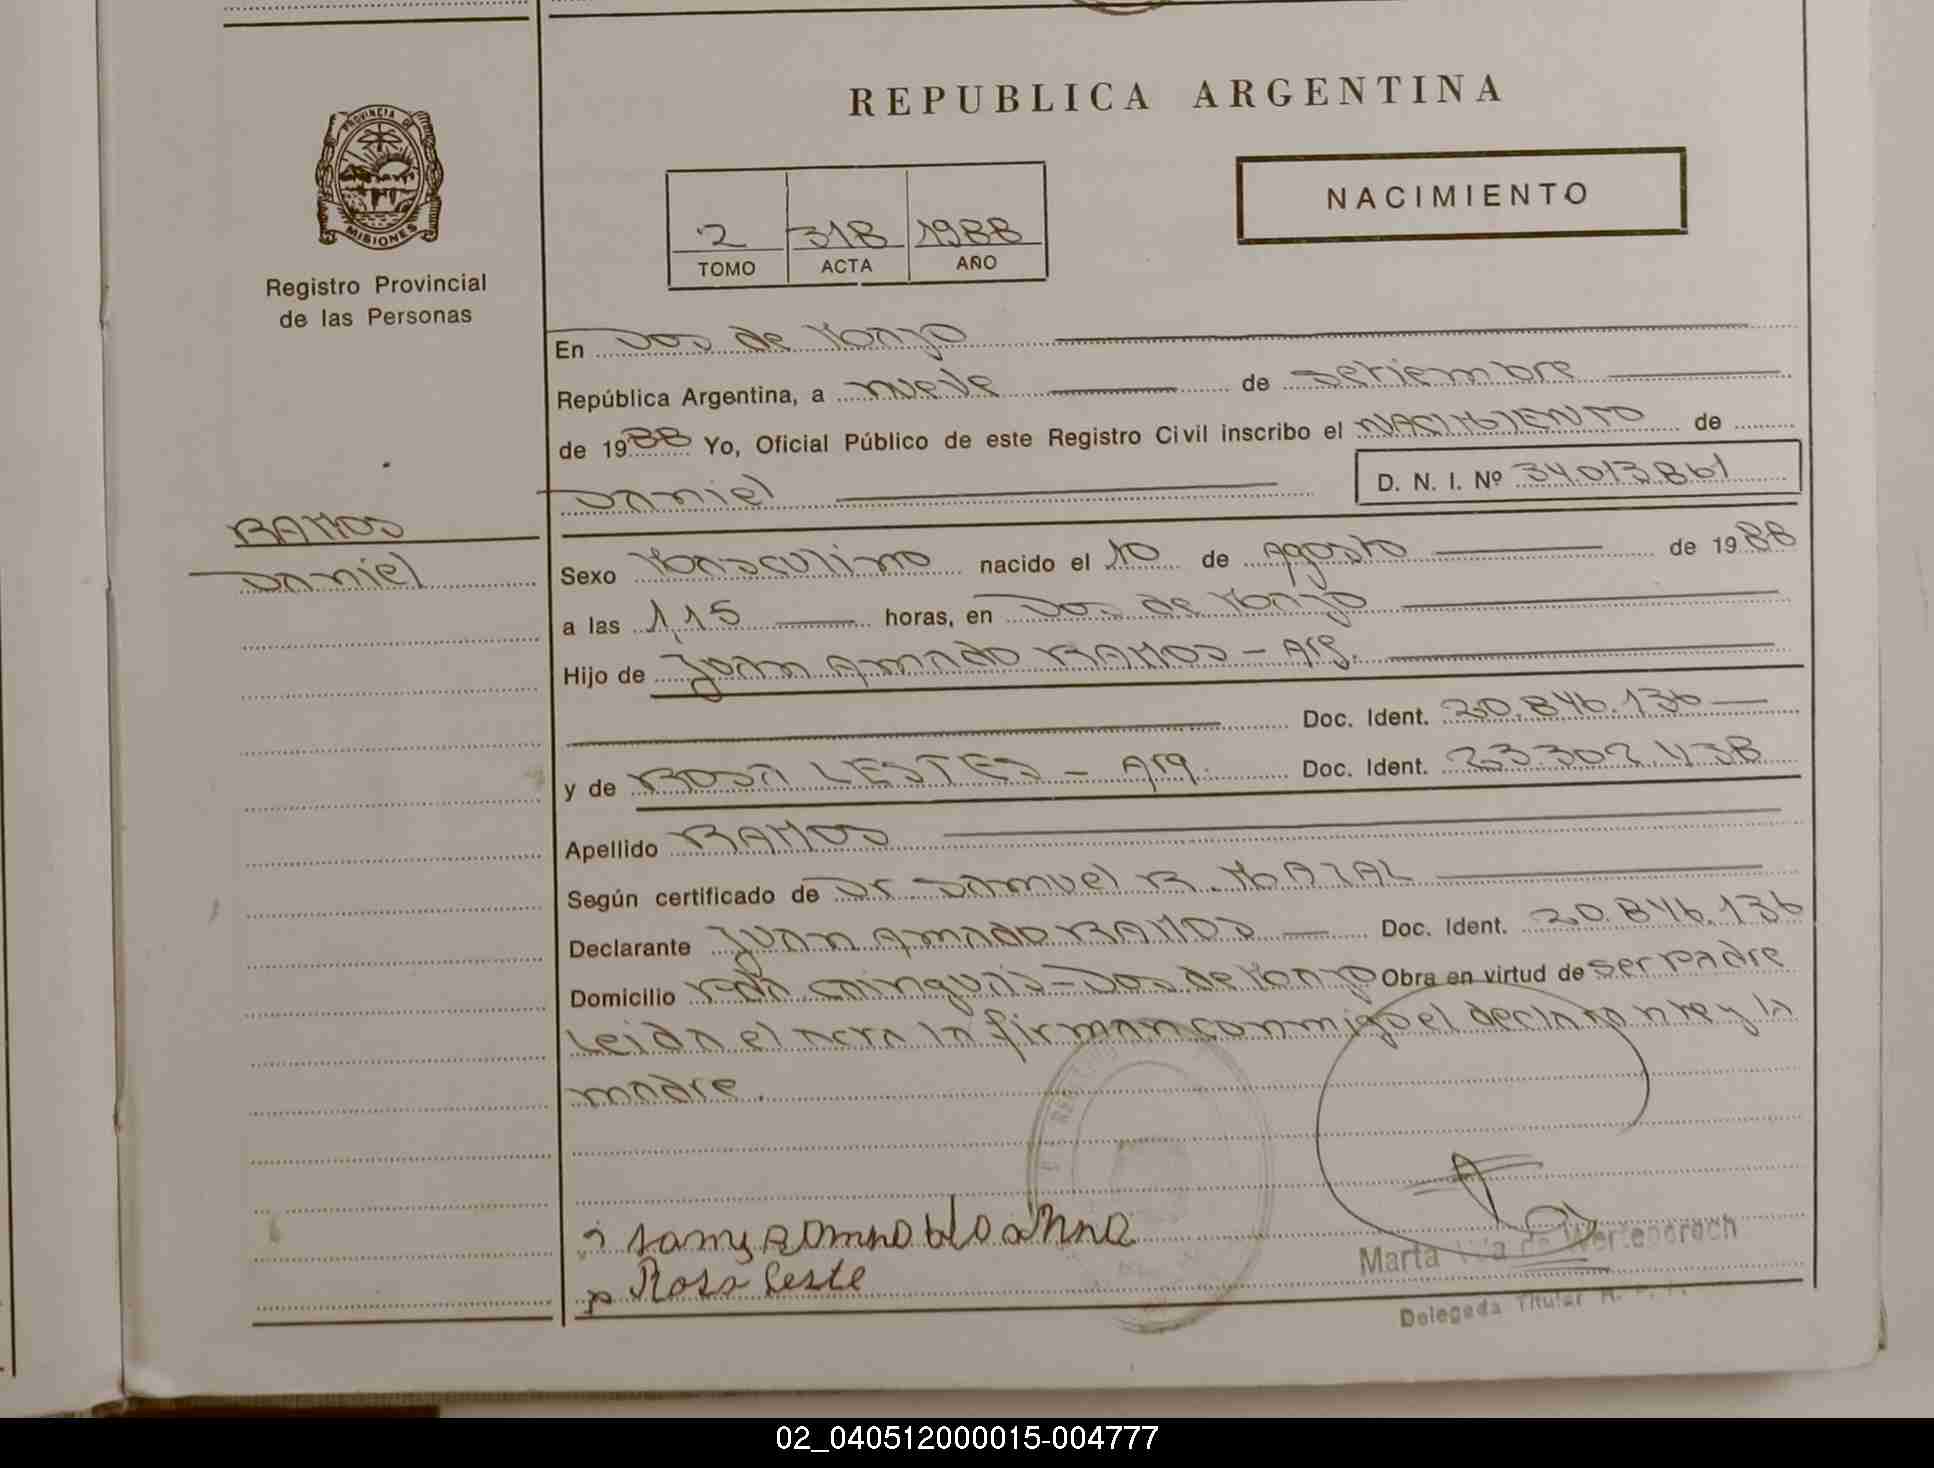 REPUBLICA ARGENTINA
PROVINCIA DE
MISIONES
Registro Provincial
de las Personas
NACIMIENTO
2 318 1988
TOMO ACTA AÑO
En Dos de Mayo
República Argentina, a nueve de setiembre
de 1988 Yo, Oficial Público de este Registro Civil inscribo el NACIMIENTO de
Daniel D. N. I. Nº 34.013.861
RAMOS
Daniel
Sexo Masculino nacido el 10 de Agosto de 1988
a las 1,15 horas, en Dos de Mayo
Hijo de Juan Amado RAMOS - Arg.
Doc. Ident. 20.846.136
y de Rosa LESTES - Arg. Doc. Ident. 23.302.438
Apellido RAMOS
Según certificado de Dr. Samuel R. MAZAL
Declarante Juan Amado RAMOS Doc. Ident. 20.846.136
Domicilio - Dos de Mayo Obra en virtud de ser padre
Leida el acta la firman conmigo el declarante y la
madre.
Rosa Leste
Marta de
Delegada Titular R. P. P.
02_040512000015-004777